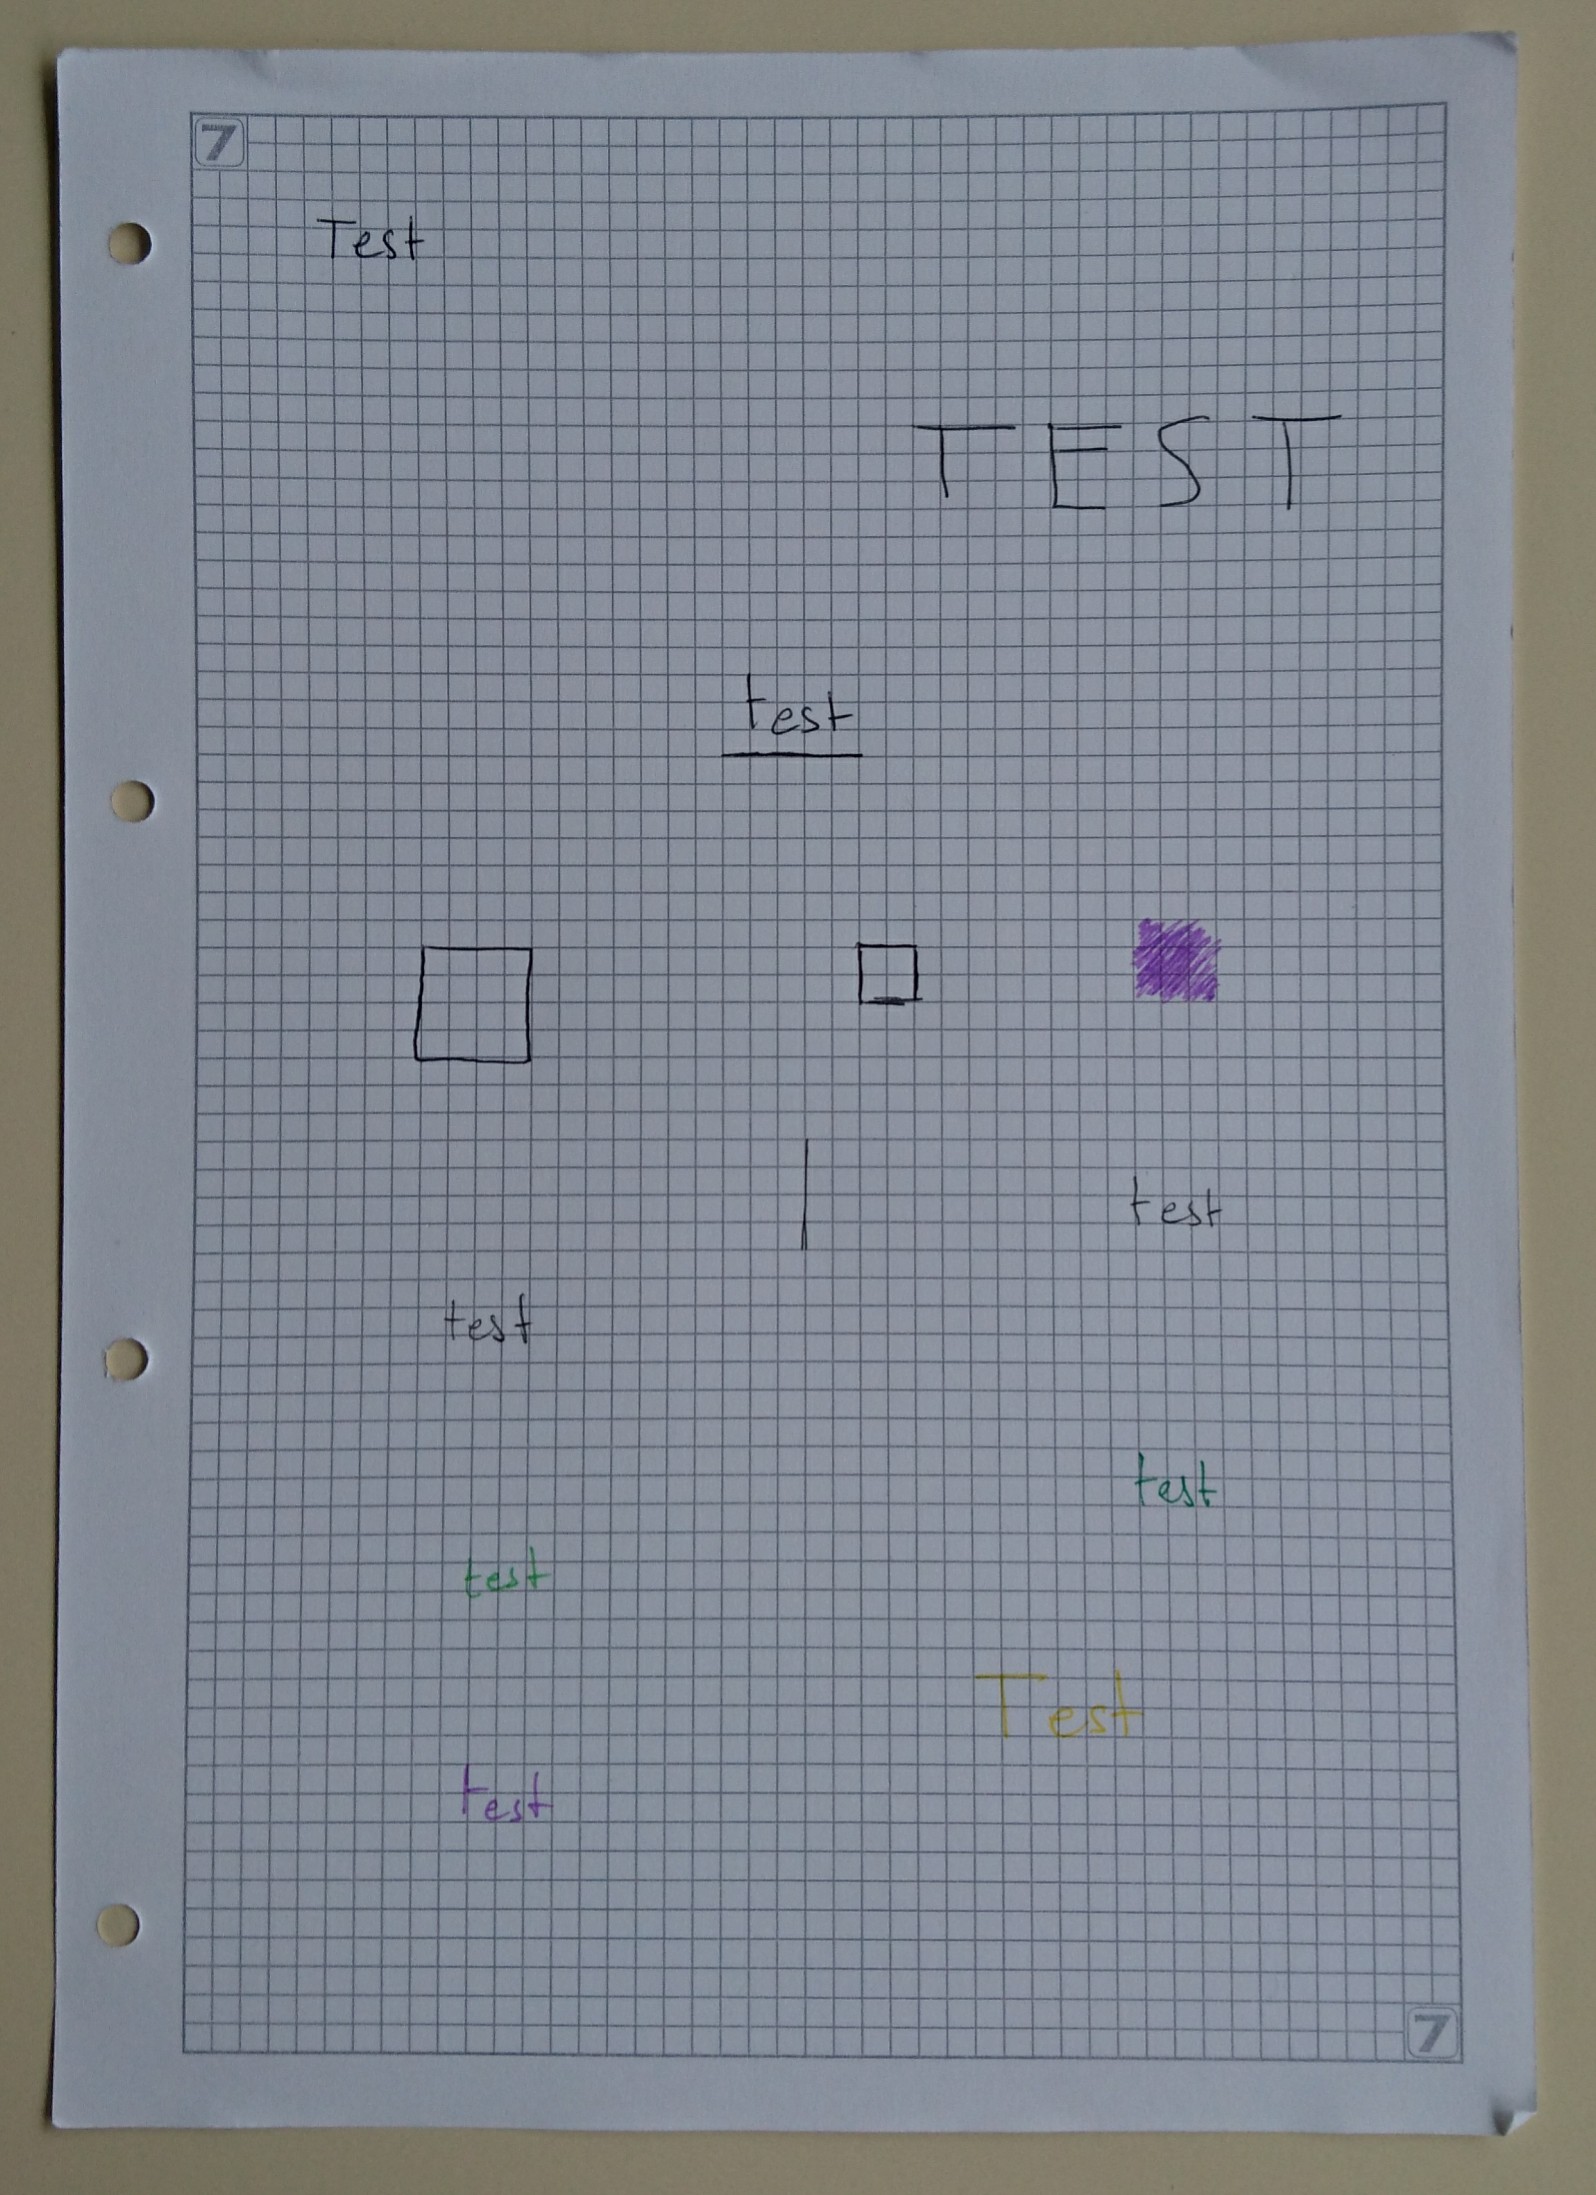 7
Test
TEST
test
test
test
test
test
Test
test
7